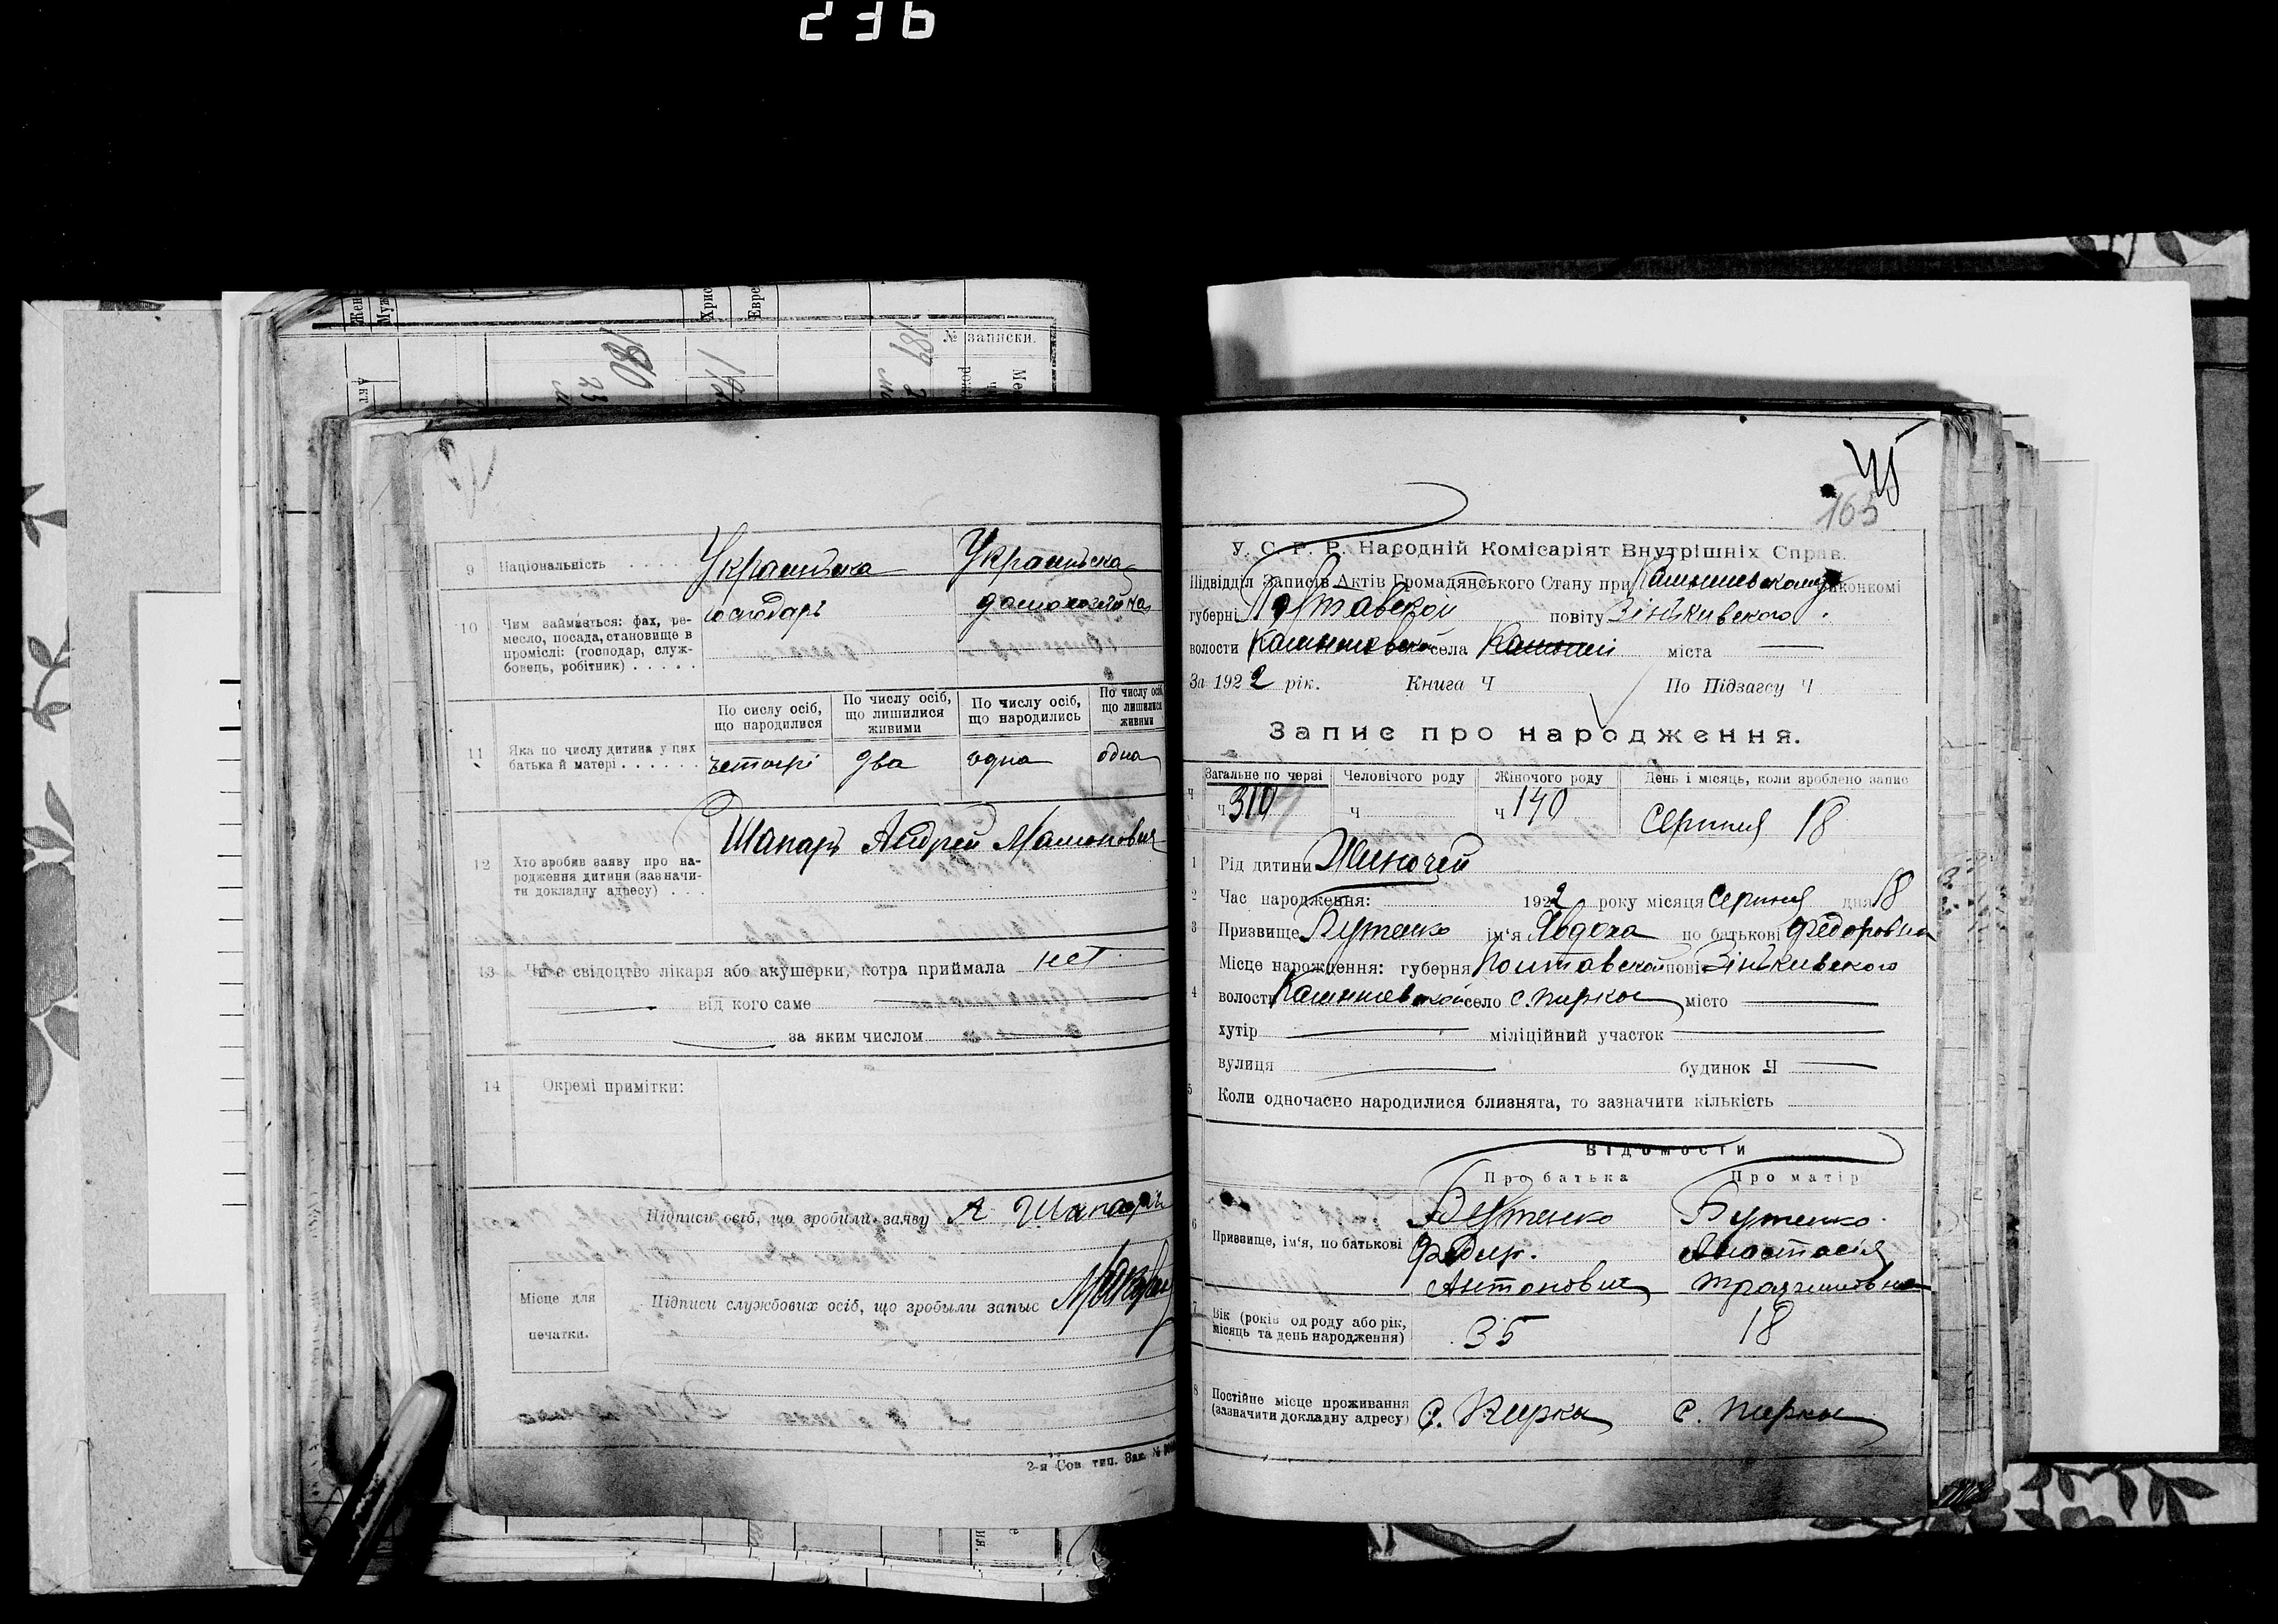 236
Жен
Муж
Хрис
Евре
№ записки.
189
180
9 Національність . . . . . Украинська Украинська
10 Чим займається: фах, ре-
месло, посада, становище в
промислі: (господар, служ-
бовець, робітник) . . . . .
господарь домохозяйка
По сислу осіб, що народилися
По числу осіб, що лишилися живими
По числу осіб, що народились
По числу осіб що лишилися живими
11 Яка по числу дитина у цих
батька й матері . . . . . .
четырі два одна одна
12 Хто зробив заяву про на-
родження дитини (зазначи-
ти докладну адресу) . . .
Шапарь Андрей
13 Чи є свідоцтво лікаря або акушерки, котра приймала нет
від кого саме
за яким числом
14 Окремі примітки:
Підписи осіб, що зробили заяву А Шапарь
Місце для
печатки.
Підписи службових осіб, що зробыли запыс
2-я Сов тип. Зак. №
45
165
У. С. Р. Р. Народній Комісаріят Внутрішніх Справ.
Підвідділ Записів Актів Громадянського Стану при виконкомі
губерні Полтавской повіту Зіньківского
волости села міста —
За 1922 рік. Книга Ч По Підзагсу Ч
Запис про народження.
Загальне по черзі Человічого роду Жіночого роду День і місяць, коли зроблено запис
ч 310 ч ч 140 Серпня 18
1 Рід дитини Жиночей
2 Час народження: 1922 року місяця Серпня дня 18
3 Призвище Бутенко ім'я Явдоха по батькові Федоровна
4 Місце народження: губерня Полтавской повіт Зіньківского
волость село с. Пирки місто —
хутір — міліційний участок —
вулиця — будинок Ч —
5 Коли одночасно народилися близнята, то зазначити кількість
Відомости
Про батька Про матір
6 Призвище, ім'я, по батькові
Бутенко Бутенко
Федир. Анастасія
Антонович
7 Вік (років од роду або рік,
місяць та день народження)
35 18
8 Постійне місце проживання
(зазначити докладну адресу)
с. Пирки с. Пирки